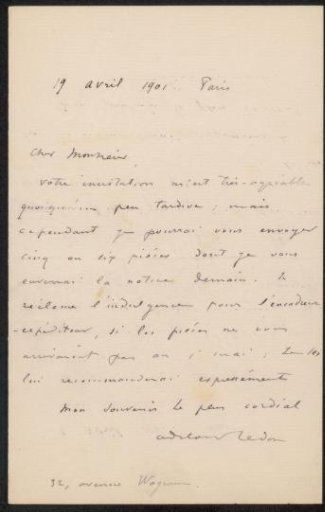 19 avril 1901. Paris
Cher Monsieur,
Votre invitation m'est très-agréable
quoiqu'un peu tardive ; mais
cependant je pourrai vous envoyer
cinq ou six pièces dont je vous
enverrai la notice demain. Je
réclame l'indulgence pour l'encadreur
-expéditeur, si les pièces ne vous
arrivaient pas au 1 mai ;
lui recommanderai expressément
Mon souvenir le plus cordial
Odilon Redon
32, avenue Wagram